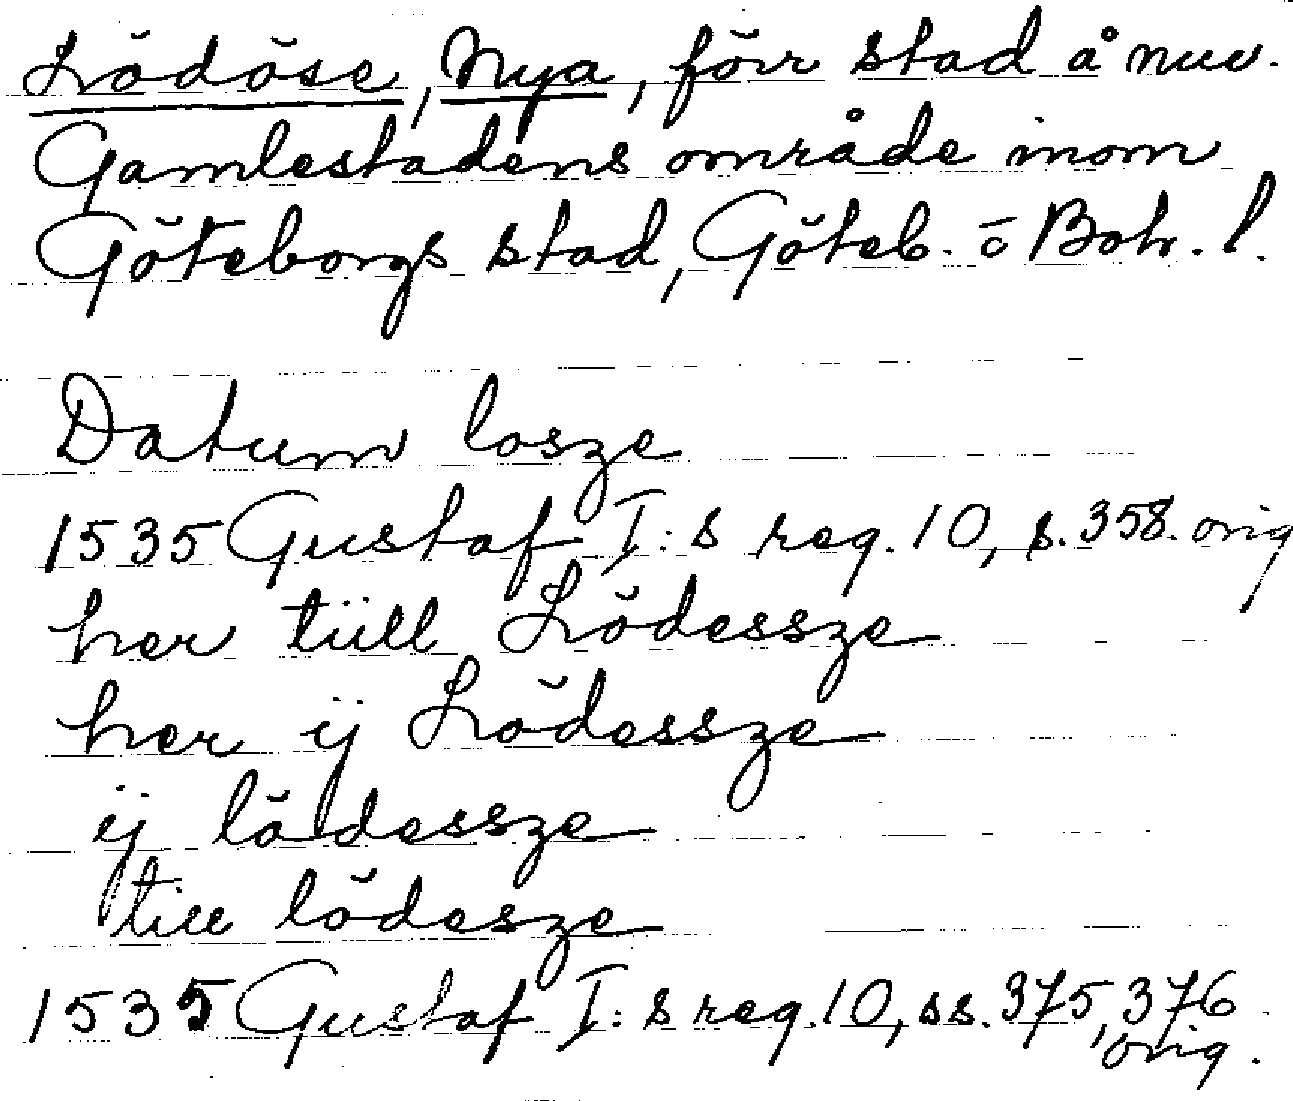 Lödöse, Nya, förr stad å nuv.
Gamlestadens område inom
Göteborgs stad, Göteb. o Boh. l.
Datum losze
1535 Gustaf I:s reg. 10, s. 358. orig
her tiill Lödessze
her ij Lödessze
ij lödessze
till lödesze
1535 Gustaf I:s reg. 10, ss. 375, 376
orig.